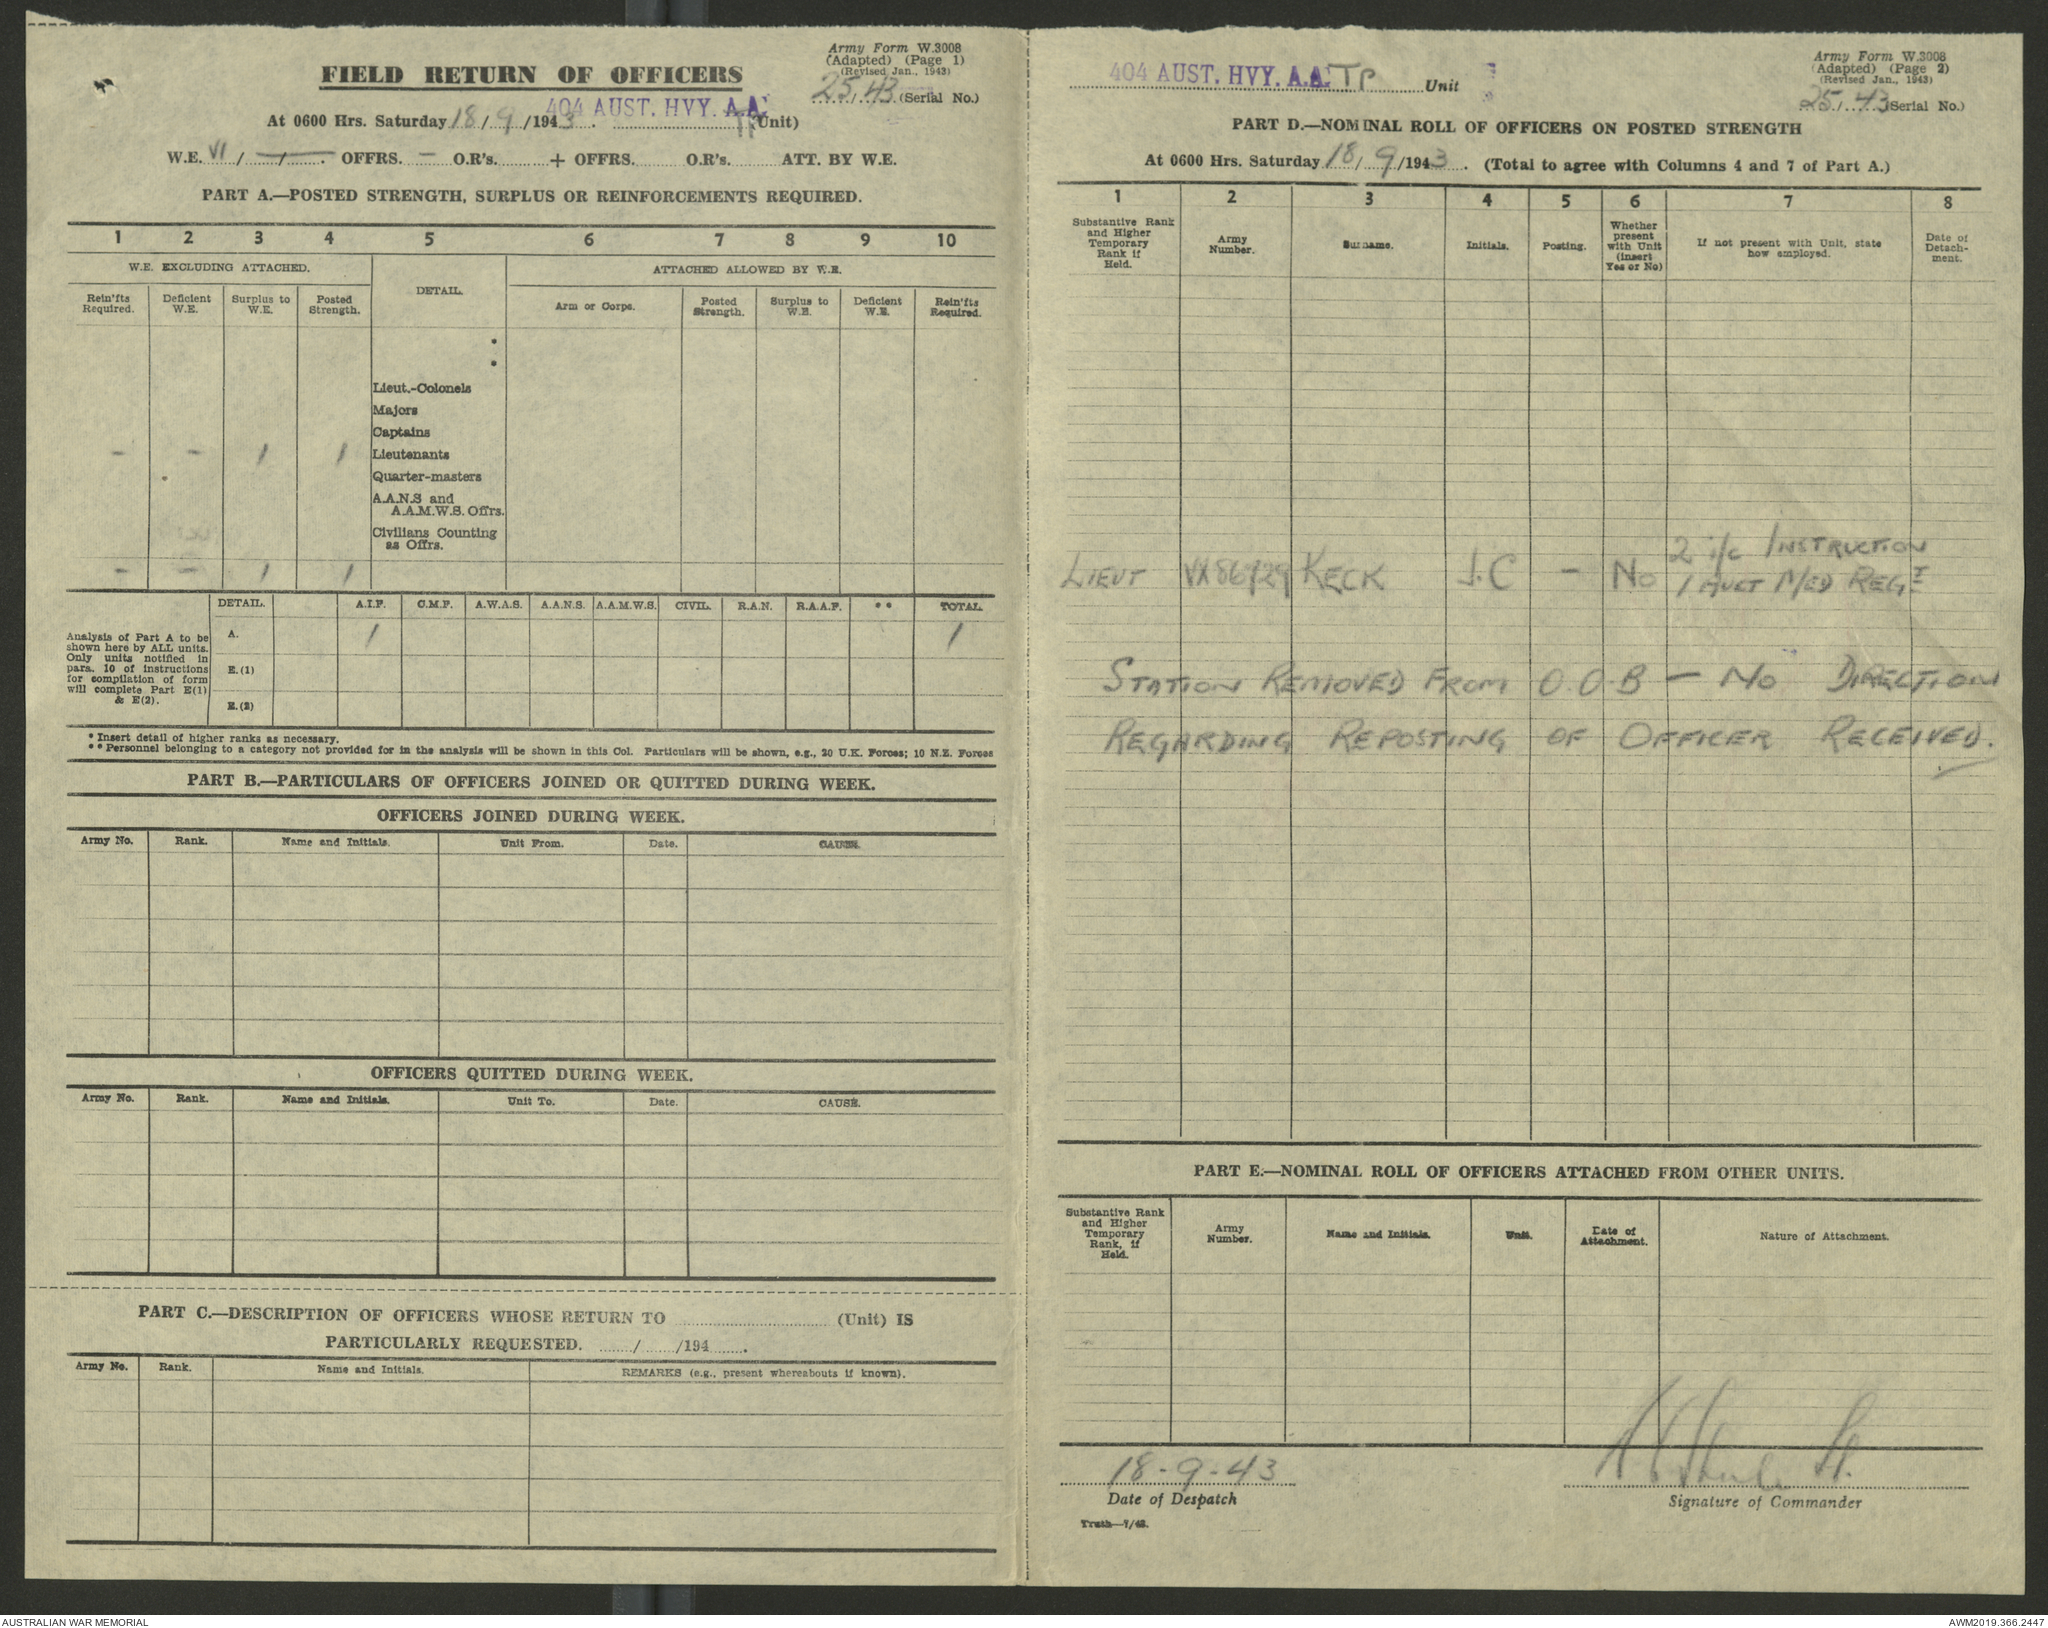 Army Form W.3008
(Adapted) (Page 1)
(Revised Jan., 1943)
25/43 (Serial No.)
FIELD RETURN OF OFFICERS
404 AUST. HVY. A.A.
At 0600 Hrs. Saturday 18/9/1943. TP (Unit)
W.E. VI / — / — . OFFRS. — O.R's. + OFFRS. O.R's. ATT. BY W.E.
PART A.—POSTED STRENGTH, SURPLUS OR REINFORCEMENTS REQUIRED.
1 2 3 4 5 6 7 8 9 10
W.E. EXCLUDING ATTACHED. DETAIL. ATTACHED ALLOWED BY W.E.
Rein'fts Required. Deficient W.E. Surplus to W.E. Posted Strength. Arm or Corps. Posted Strength. Surplus to W.E. Deficient W.E. Rein'fts Required.
*
*
Lieut.-Colonels
Majors
Captains
- - 1 1 Lieutenants
Quarter-masters
A.A.N.S and
A.A.M.W.S. Offrs.
Civilians Counting
as Offrs.
- - 1 1
DETAIL. A.I.F. C.M.F. A.W.A.S. A.A.N.S. A.A.M.W.S. CIVIL. R.A.N. R.A.A.F. ** TOTAL
Analysis of Part A to be
shown here by ALL units.
Only units notified in
para. 10 of instructions
for compilation of form
will complete Part E(1)
& E(2).
A. 1 1
E.(1)
E.(2)
* Insert detail of higher ranks as necessary.
** Personnel belonging to a category not provided for in the analysis will be shown in this Col. Particulars will be shown, e.g., 20 U.K. Forces; 10 N.Z. Forces
PART B.—PARTICULARS OF OFFICERS JOINED OR QUITTED DURING WEEK.
OFFICERS JOINED DURING WEEK.
Army No. Rank. Name and Initials. Unit From. Date. CAUSE.
OFFICERS QUITTED DURING WEEK.
Army No. Rank. Name and Initials. Unit To. Date. CAUSE.
PART C.—DESCRIPTION OF OFFICERS WHOSE RETURN TO (Unit) IS
PARTICULARLY REQUESTED. / /194 .
Army No. Rank. Name and Initials. REMARKS (e.g., present whereabouts if known).
Army Form W.3008
(Adapted) (Page 2)
(Revised Jan., 1943)
25/43 Serial No.)
404 AUST. HVY. A.A. TP Unit
PART D.—NOMINAL ROLL OF OFFICERS ON POSTED STRENGTH
At 0600 Hrs. Saturday 18/9/1943. (Total to agree with Columns 4 and 7 of Part A.)
1 2 3 4 5 6 7 8
Substantive Rank and Higher Temporary Rank if Held. Army Number. Surname. Initials. Posting. Whether present with Unit (insert Yes or No) If not present with Unit, state how employed. Date of Detachment.
LIEUT VX86729 KECK J.C - No 2 i/c INSTRUCTION
1 AUST MED REGT
STATION REMOVED FROM O.O.B — No DIRECTION
REGARDING REPOSTING OF OFFICER RECEIVED.
PART E.—NOMINAL ROLL OF OFFICERS ATTACHED FROM OTHER UNITS.
Substantive Rank and Higher Temporary Rank, if Held. Army Number. Name and Initials. Unit. Date of Attachment. Nature of Attachment.
18-9-43
Date of Despatch
Signature of Commander
Truth—7/43.
AUSTRALIAN WAR MEMORIAL
AWM2019.366.2447